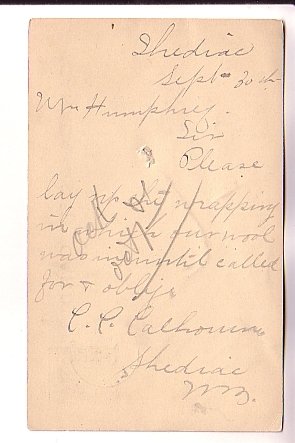 Shediac
Sept 30th
Wm Humphrey.
Sir
Please
lay up the wrapping
in which our wool
was in until called
for & oblige
C. C. Calhoun
Shediac
N.B.